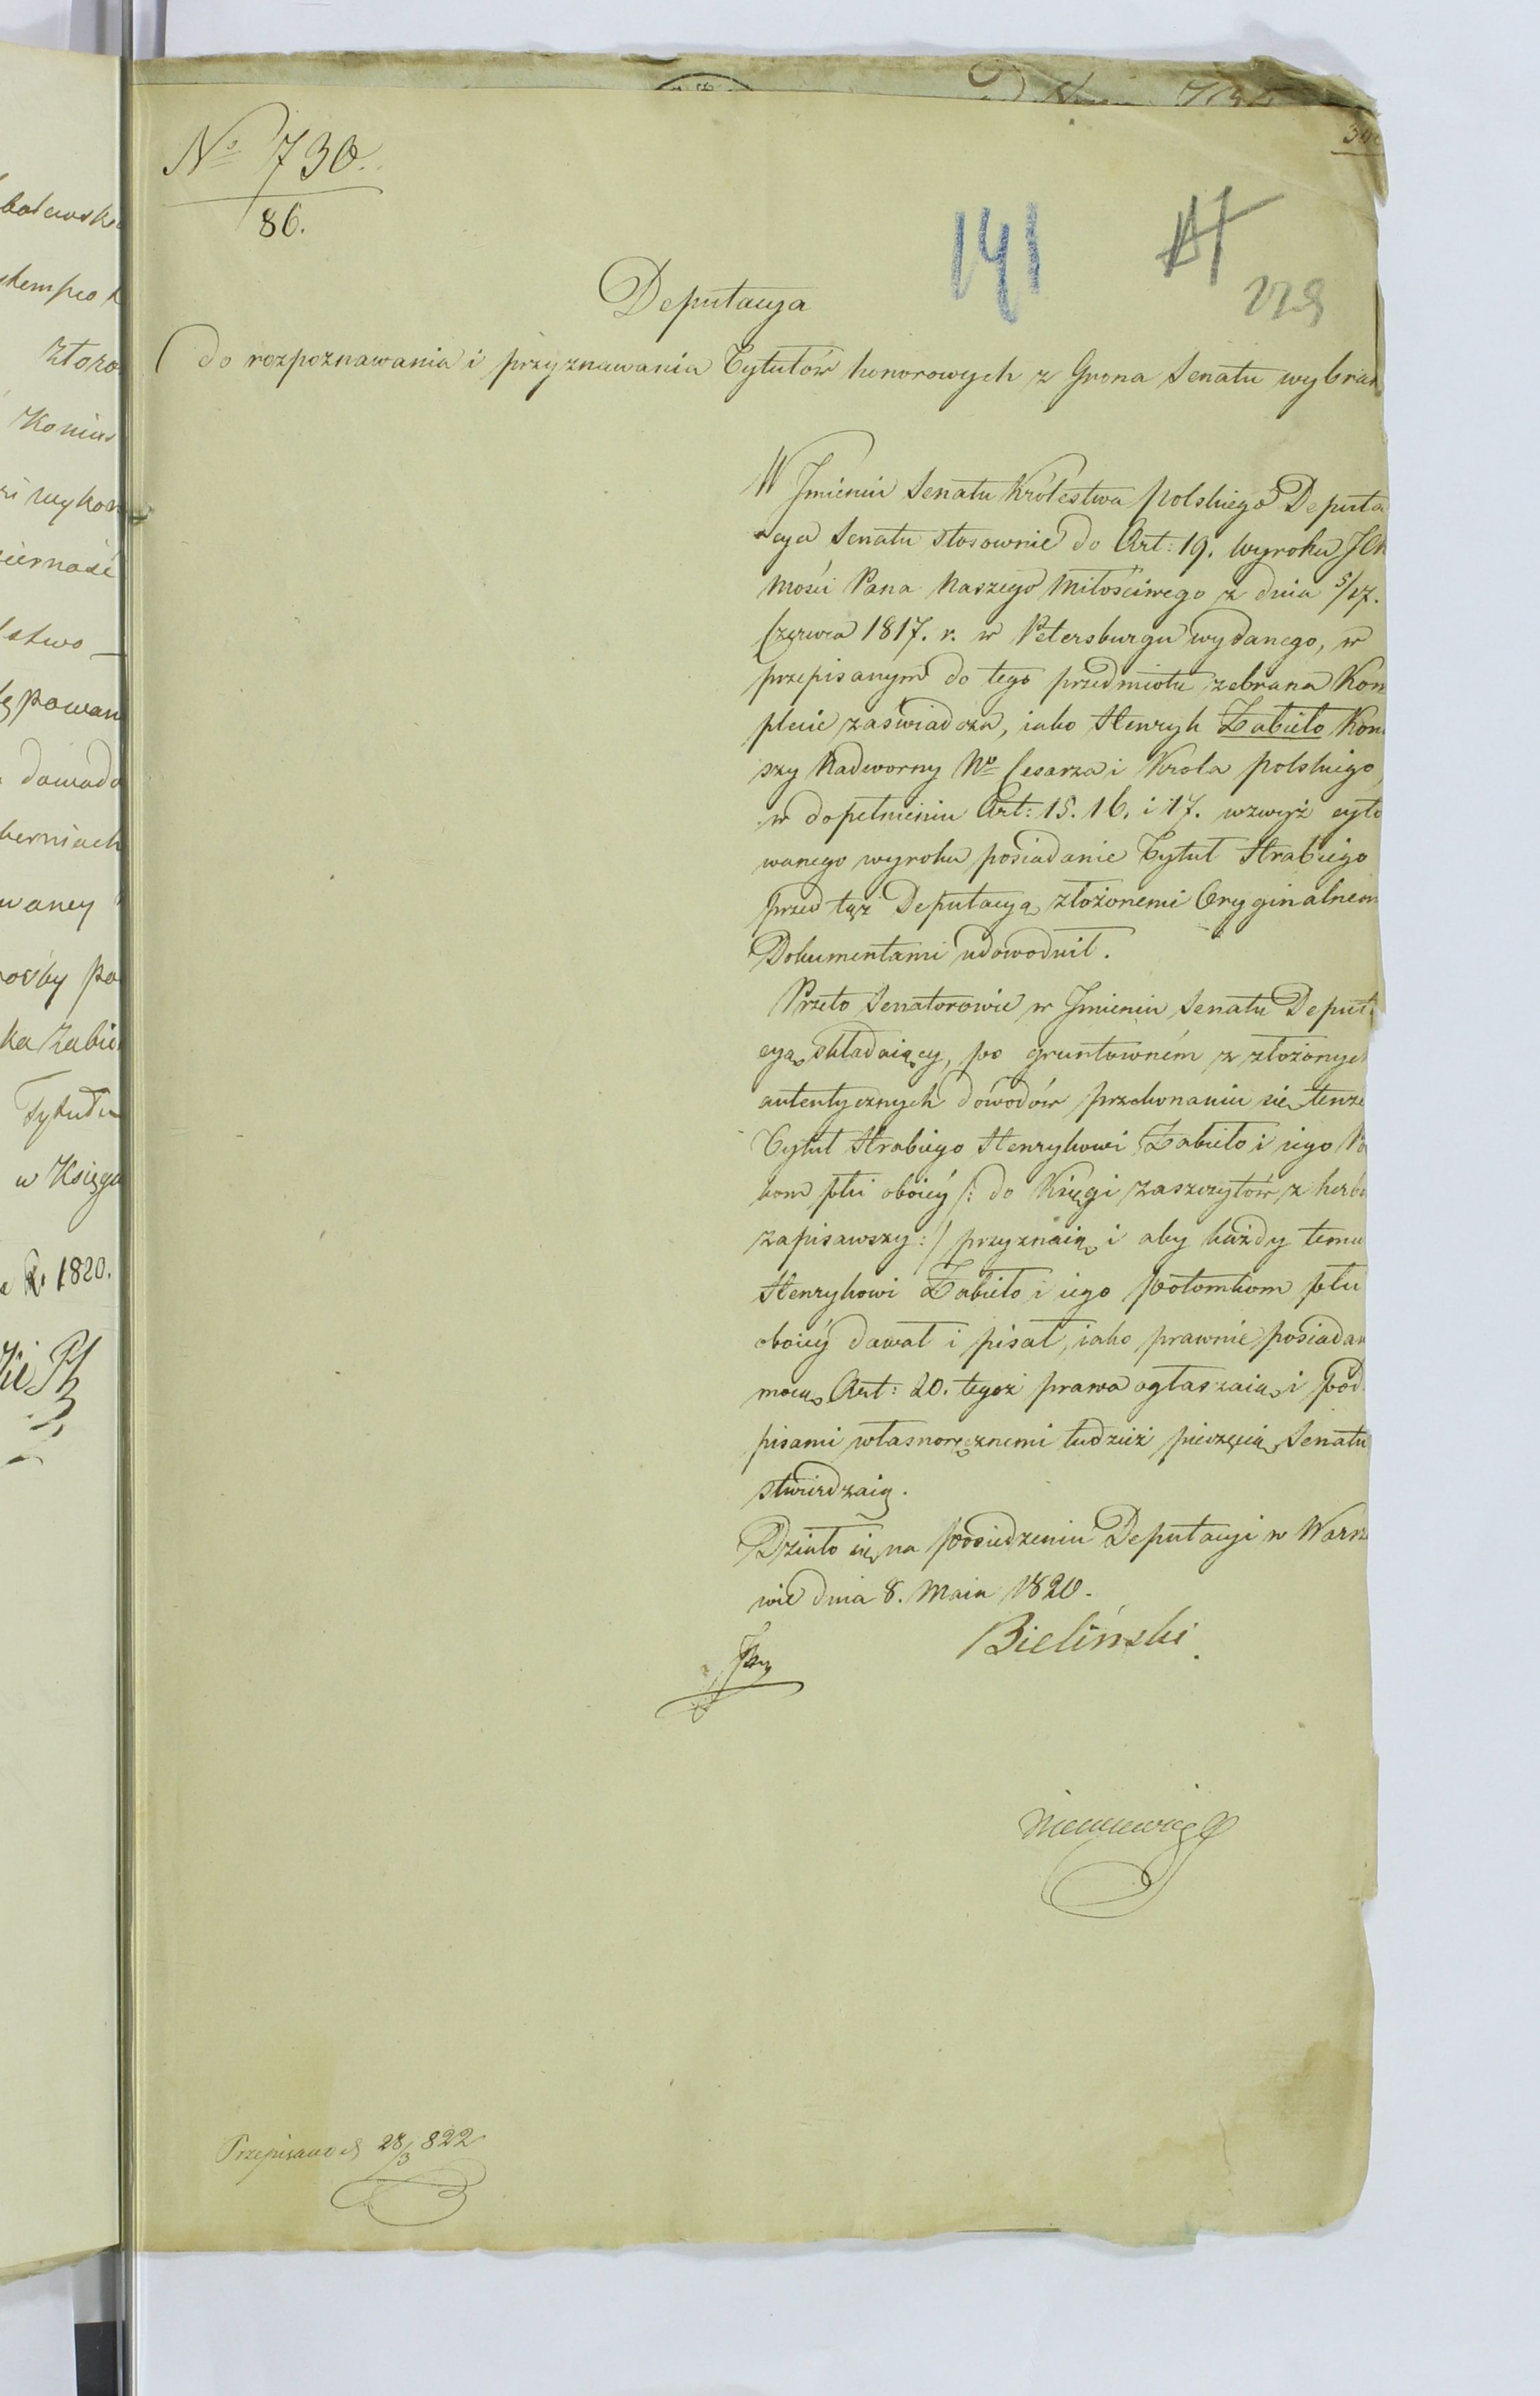 No 730.
86.
141
Deputacya
do rozpoznawania i przyznawania Tytułów honorowych z Grona Senatu wybran
W Jmieniu Senatu Królestwa polskiego Deputa
cya Senatu stosownie do Art: 19. wyroku JCK
Mości Pana Naszego Miłościwego z dnia 5/17.
Czerwca 1817. r. w Petersburgu wydanego, w
przepisanym do tego przedmiotu zebrana Kom
plecie zaświadcza, iako Henryk Zabiełło Koniu
szy Nadworny No Cesarza i Krola polskiego,
w dopełnieniu Art: 15. 16. i 17. wzwyż cyto
wanego wyroku posiadanie Tytuł Hrabiego
przed tąż Deputacyą złożonemi Oryginalnem
Dokumentami udowodnił.
Przeto Senatorowie w Jmieniu Senatu Deputa
cyą składaiący, po gruntowném z złożonych
autentycznych dowodów przekonaniu się tenże
Tytuł Hrabiego Henrykowi Zabiełło i iego Po
kom płci oboiey /: do Księgi zaszczytów z herbu
zapisawszy :/ przyznaią i aby każdy temu
Henrykowi Zabiełło i iego potomkom płci
oboiey dawał i pisał, iako prawnie posiadan
mocą Art: 20. tegoż prawa ogłaszaią i pod
pisami własnoręcznemi tudzież pieczęcią Senatu
stwierdzaią.
Działo się na posiedzeniu Deputacyi w Warsza
wie dnia 8. Maia 1820.
Bieliński
Niemcewicz
Przepisano d 28/3 822
bolewski
Konius
wykon
stwo
dowodo
berniach
waney
ka Zabie
Tytułu
w Księgę
1820.